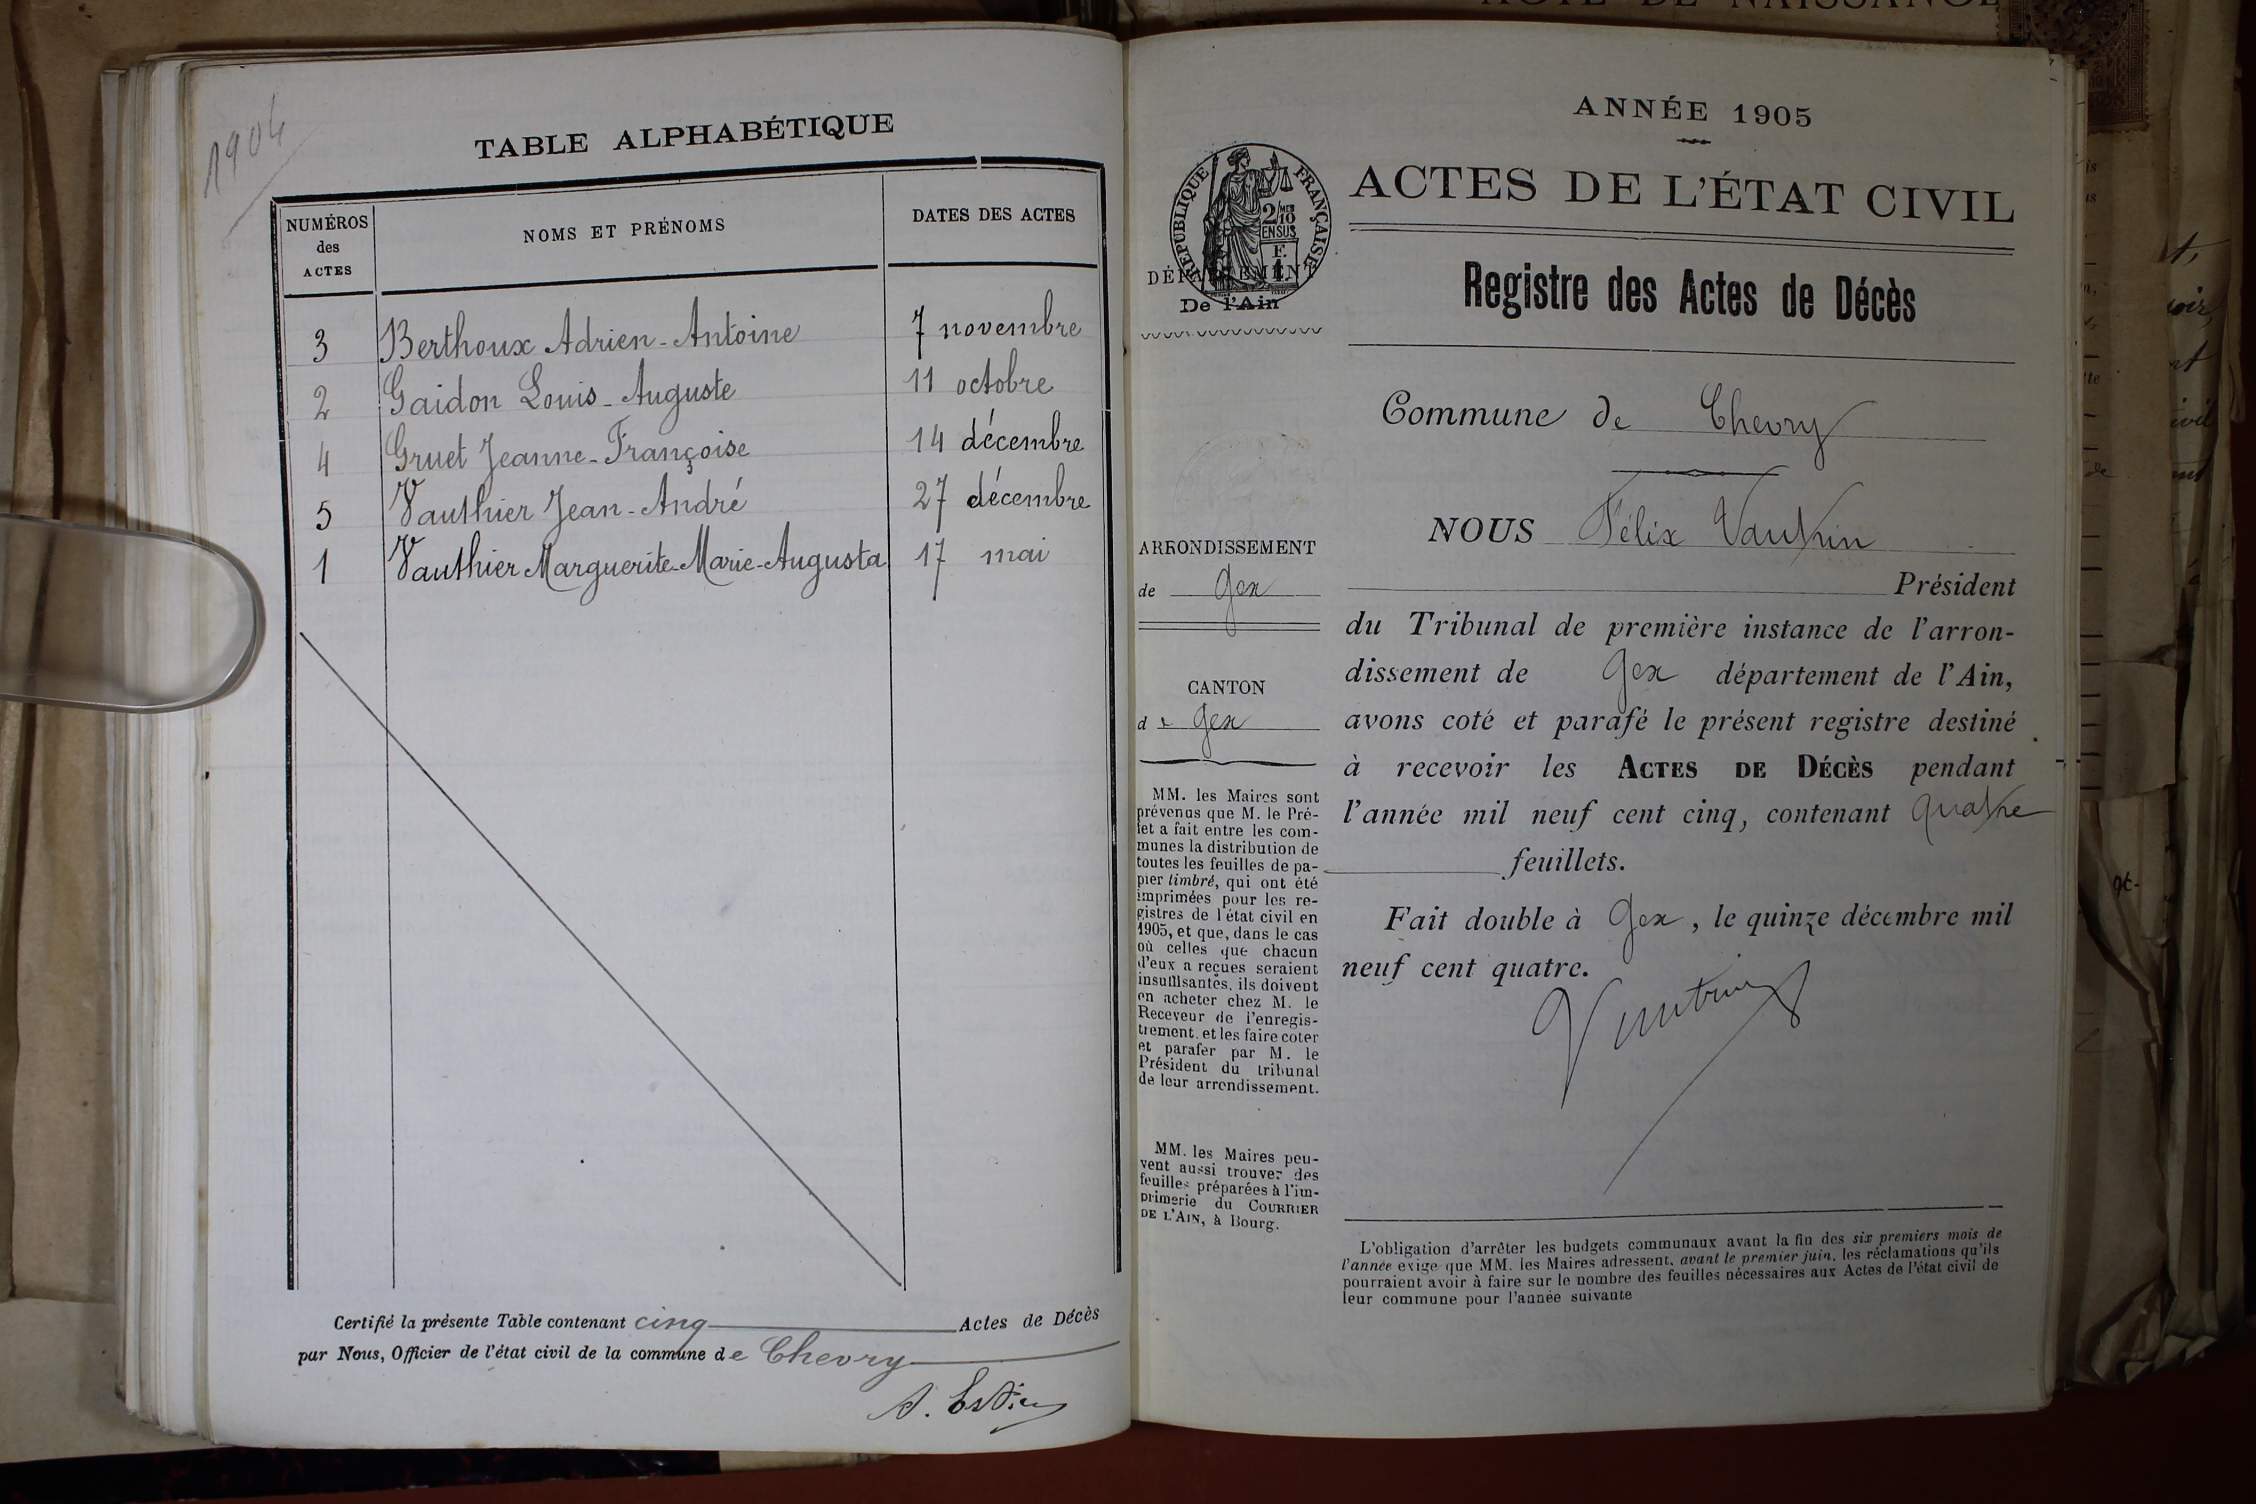 1904
TABLE ALPHABÉTIQUE
NUMÉROS
des
ACTES
NOMS ET PRÉNOMS
DATES DES ACTES
3 Berthoux Adrien-Antoine 7 novembre
2 Gaidon Louis-Auguste 11 octobre
4 Gruet Jeanne-Françoise 14 décembre
5 Vauthier Jean-André 27 décembre
1 Vauthier Marguerite-Marie-Augusta 17 mai
Certifié la présente Table contenant cinq Actes de Décès
par Nous, Officier de l'état civil de la commune de Chevry
ANNÉE 1905
ACTES DE L'ÉTAT CIVIL
RÉPUBLIQUE FRANÇAISE
2/10 MES
EN SUS
F.
1
DÉPARTEMENT
De l'Ain
Registre des Actes de Décès
Commune de Chevry
NOUS Félix Vautrin
Président
du Tribunal de première instance de l'arron-
dissement de Gex département de l'Ain,
avons coté et parafé le présent registre destiné
à recevoir les ACTES DE DÉCÈS pendant
l'année mil neuf cent cinq, contenant quatre
feuillets.
Fait double à Gex, le quinze décembre mil
neuf cent quatre.
Vautrin
ARRONDISSEMENT
de Gex
CANTON
de Gex
MM. les Maires sont
prévenus que M. le Pré-
fet a fait entre les com-
munes la distribution de
toutes les feuilles de pa-
pier timbré, qui ont été
imprimées pour les re-
gistres de l'état civil en
1905, et que, dans le cas
où celles que chacun
d'eux a reçues seraient
insuffisantes, ils doivent
en acheter chez M. le
Receveur de l'enregis-
trement, et les faire coter
et parafer par M. le
Président du tribunal
de leur arrondissement.
MM. les Maires peu-
vent aussi trouver des
feuilles préparées à l'im-
primerie du COURRIER
DE L'AIN, à Bourg.
L'obligation d'arrêter les budgets communaux avant la fin des six premiers mois de
l'année exige que MM. les Maires adressent, avant le premier juin, les réclamations qu'ils
pourraient avoir à faire sur le nombre des feuilles nécessaires aux Actes de l'état civil de
leur commune pour l'année suivante